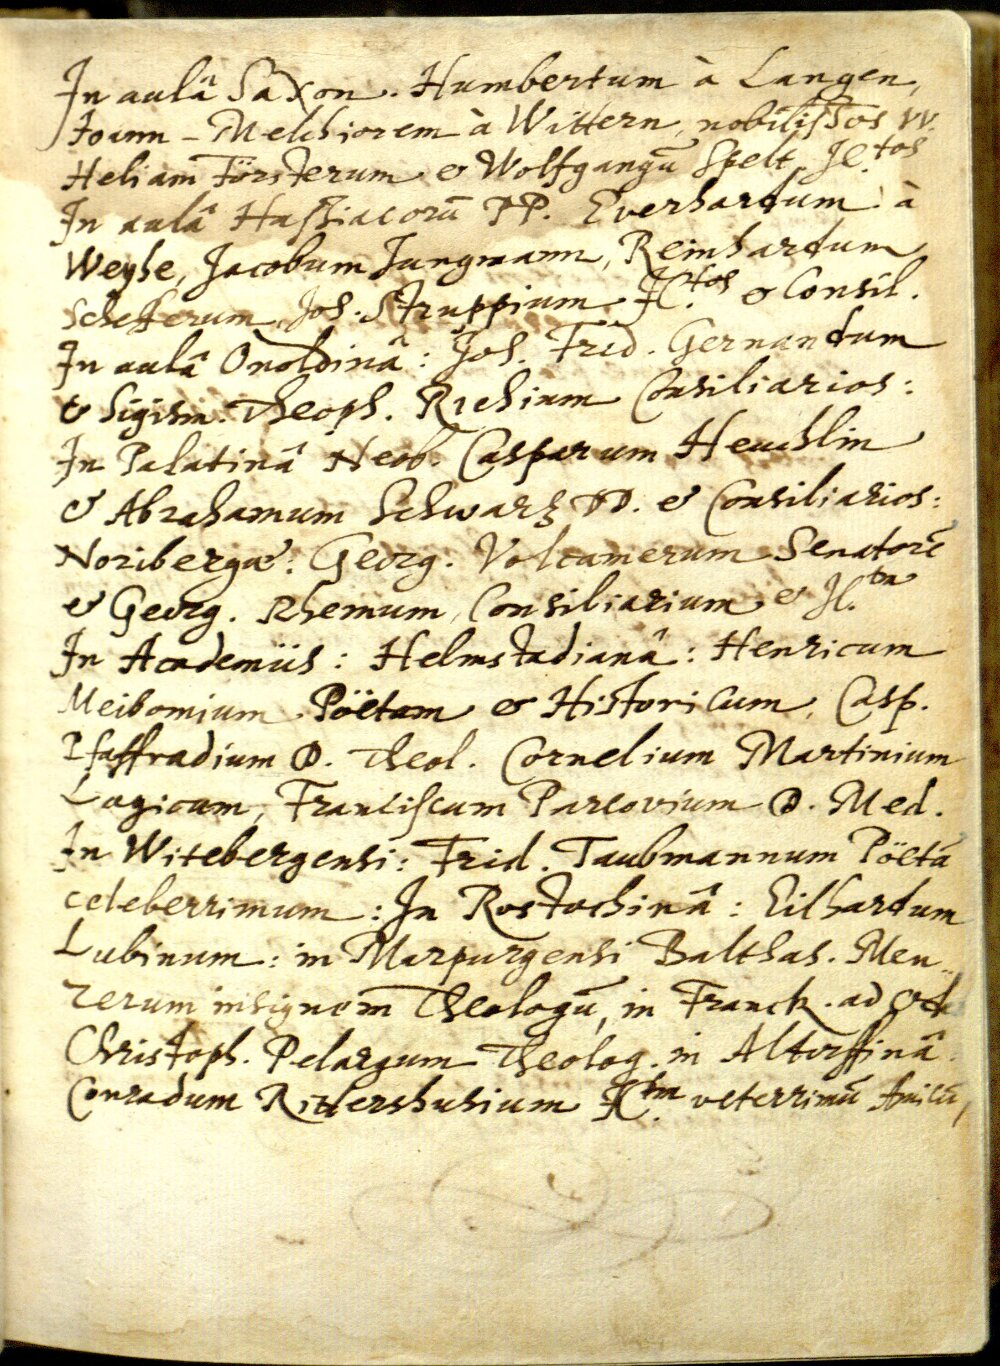 In aulâ Saxon. Humbertum à Langen,
Joann-Melchiorem à Wittern, nobilissos VV.
Heliam Försterum & Wolfgangũ Spelt JCtos
In aulâ Hassiacorũ PP. Everhardum à
Weyhe, Jacobum Jungmann, Reinhardum
Schefferum, Joh. Struppium JCtos & Consil.
In aulâ Onoldinâ: Joh. Frid. Gernandum
& Sigism. Theoph. Richium Consiliarios:
In Palatinâ Neob. Casparum Heuchlin
& Abrahamum Schwarz DD. & Consiliarios:
Noribergæ: Georg. Volcamerum Senatorẽ
& Georg. Rhemum, Consiliarium & JCtm
In Academiis: Helmstadianâ: Henricum
Meibomium Pöetam & Historicum, Casp.
Pfaffradium D. Theol. Cornelium Martinium
Logicum, Franciscum Parcovium D. Med.
In Witebergensi: Frid. Taubmannum Pöetã
celeberrimum: In Rostochinâ: Eilhardum
Lubinum: in Marpurgensi Balthas. Men-
zerum insignem Theologũ, in Franck. ad Od.
Christoph. Pelargum Theolog. in Altorffinâ
Conradum Rittershusium JCtm veterrimũ Amicũ,